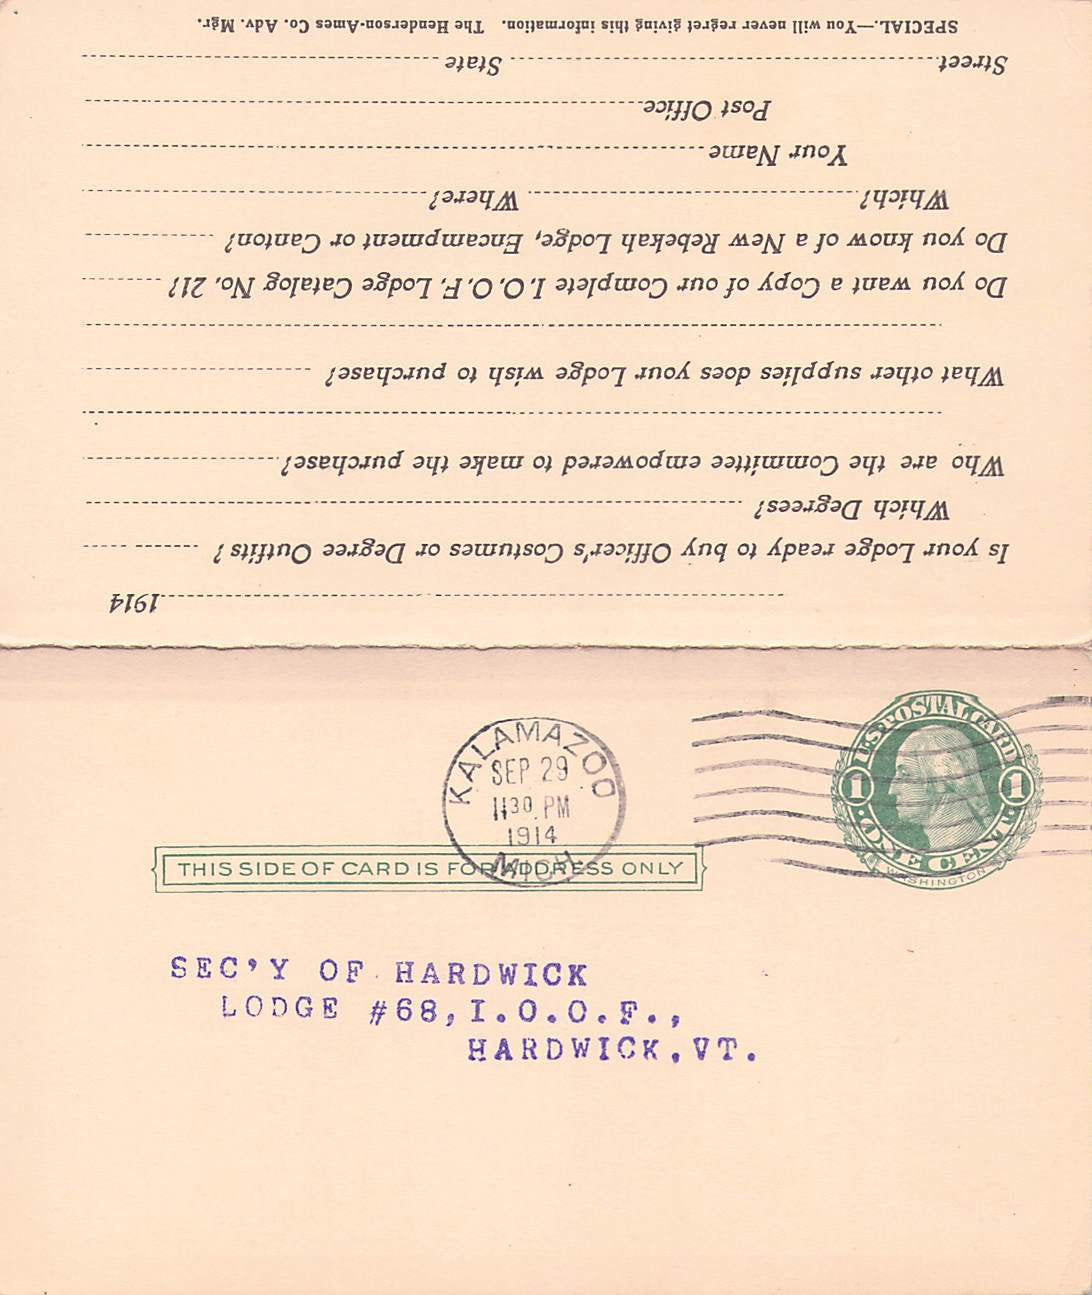 1914
Is your Lodge ready to buy Officer's Costumes or Degree Outfits?
Which Degrees?
Who are the Committee empowered to make the purchase?
What other supplies does your Lodge wish to purchase?
Do you want a Copy of our Complete I. O. O. F. Lodge Catalog No. 21?
Do you know of a New Rebekah Lodge, Encampment or Canton?
Which? Where?
Your Name
Post Office
Street State
SPECIAL.—You will never regret giving this information. The Henderson-Ames Co. Adv. Mgr.
U.S. POSTAL CARD
1 1
ONE CENT
WASHINGTON
KALAMAZOO
SEP 29
1130 PM
1914
MICH
THIS SIDE OF CARD IS FOR ADDRESS ONLY
SEC'Y OF HARDWICK
LODGE #68, I.O.O.F.,
HARDWICK, VT.